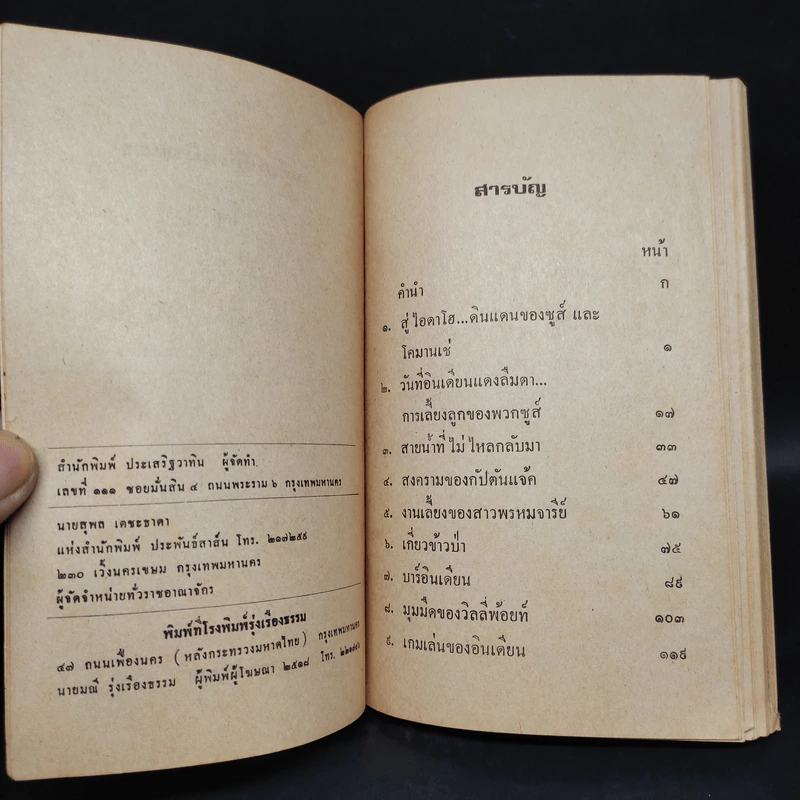 สำนักพิมพ์ ประเสริฐวาทิน ผู้จัดทำ
เลขที่ ๑๑๑ ซอยมั่นสิน ๔ ถนนพระราม ๖ กรุงเทพมหานคร
นายสุพล เตชะธาดา
แห่งสำนักพิมพ์ ประพันธ์สาส์น โทร. ๒๑๗๒๕๙
๒๓๐ เวิ้งนครเขษม กรุงเทพมหานคร
ผู้จัดจำหน่ายทั่วราชอาณาจักร
พิมพ์ที่โรงพิมพ์รุ่งเรืองธรรม
๔๗ ถนนเฟื่องนคร (หลังกระทรวงมหาดไทย) กรุงเทพมหานคร
นายมณี รุ่งเรืองธรรม ผู้พิมพ์ผู้โฆษณา ๒๕๑๘ โทร.
สารบัญ
หน้า
คำนำ ก
๑. สู่ ไอดาโฮ...ดินแดนของซูส์ และ
โคมานเช่ ๑
๒. วันที่อินเดียนแดงลืมตา...
การเลี้ยงลูกของพวกซูส์ ๑๗
๓. สายน้ำที่ ไม่ ไหลกลับมา ๓๓
๔. สงครามของกัปตันแจ้ค ๔๗
๕. งานเลี้ยงของสาวพรหมจารีย์ ๖๑
๖. เกี่ยวข้าวป่า ๗๕
๗. บาร์อินเดียน ๘๙
๘. มุมมืดของวิลลี่พ้อยท์ ๑๐๓
๙. เกมเล่นของอินเดียน ๑๑๙